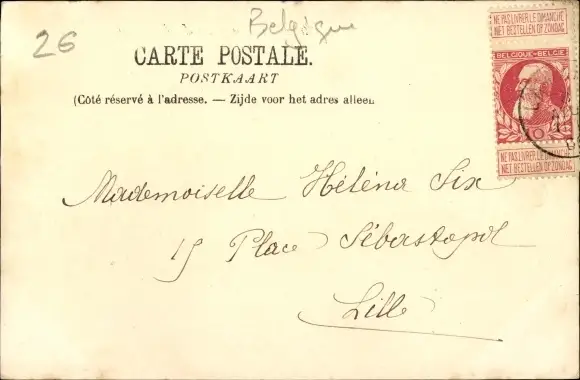 Belgique
26
NE PAS LIVRER LE DIMANCHE
NIET BESTELLEN OP ZONDAG
CARTE POSTALE.
POSTKAART
(Côté réservé à l'adresse. — Zijde voor het adres alleen
BELGIQUE-BELGIE
10
NE PAS LIVRER LE DIMANCHE
NIET BESTELLEN OP ZONDAG
Mademoiselle Héléna Six
15 Place Sébastopol
Lille